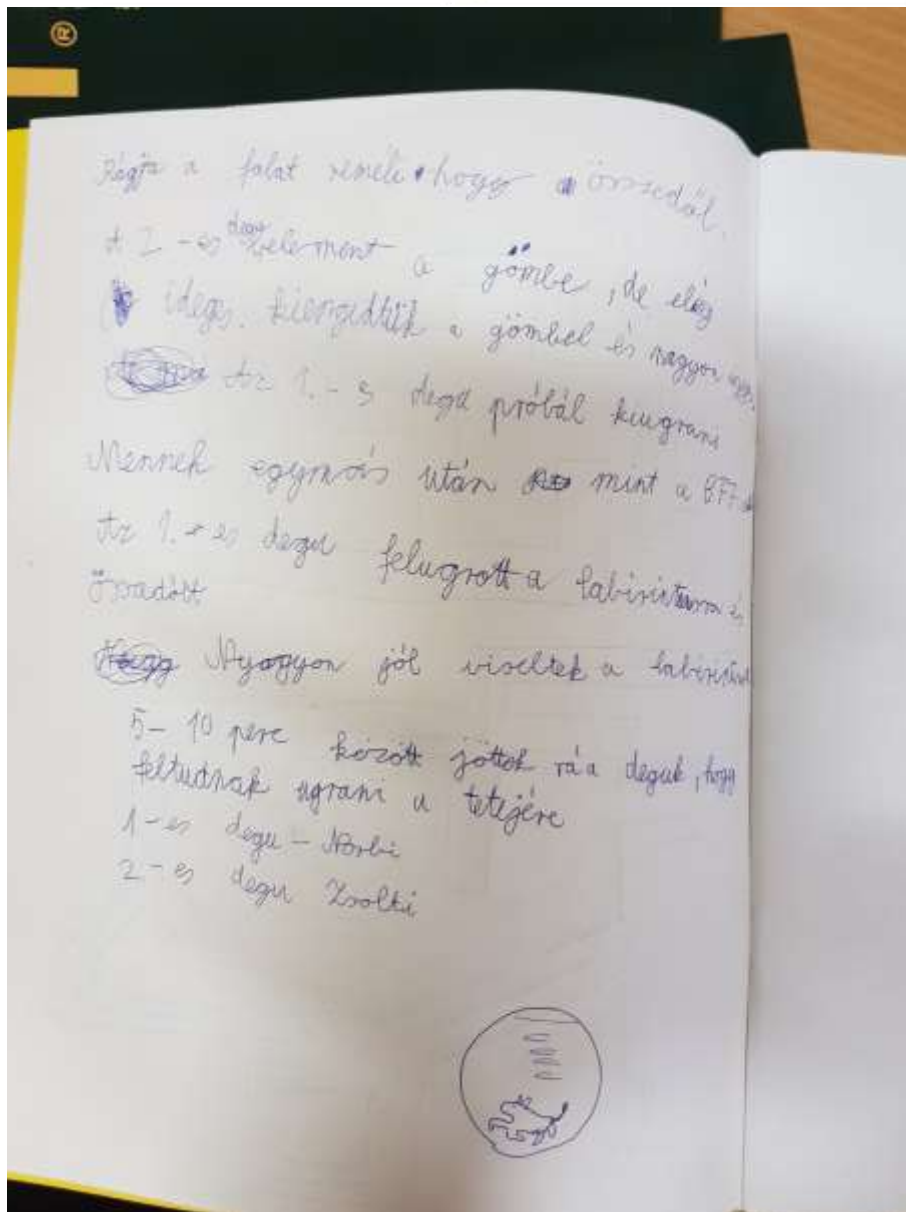 ®
Rágja a falat reméli hogy összedől.
A 2-es degu belement a gömbe, de elég
ideges. kiengedtük a gömbel és nagyon
Az 1.-s degu próbál kiugrani
Mennek egymás után mint a BFF
Az 1.-es degu felugrott a labirintusra és
Nyagyon jól viseltek a
5-10 perc között jöttek rá a deguk, hogy
feltudnak ugrani a tetejére
1-es degu - Norbi
2-es degu Zsolti